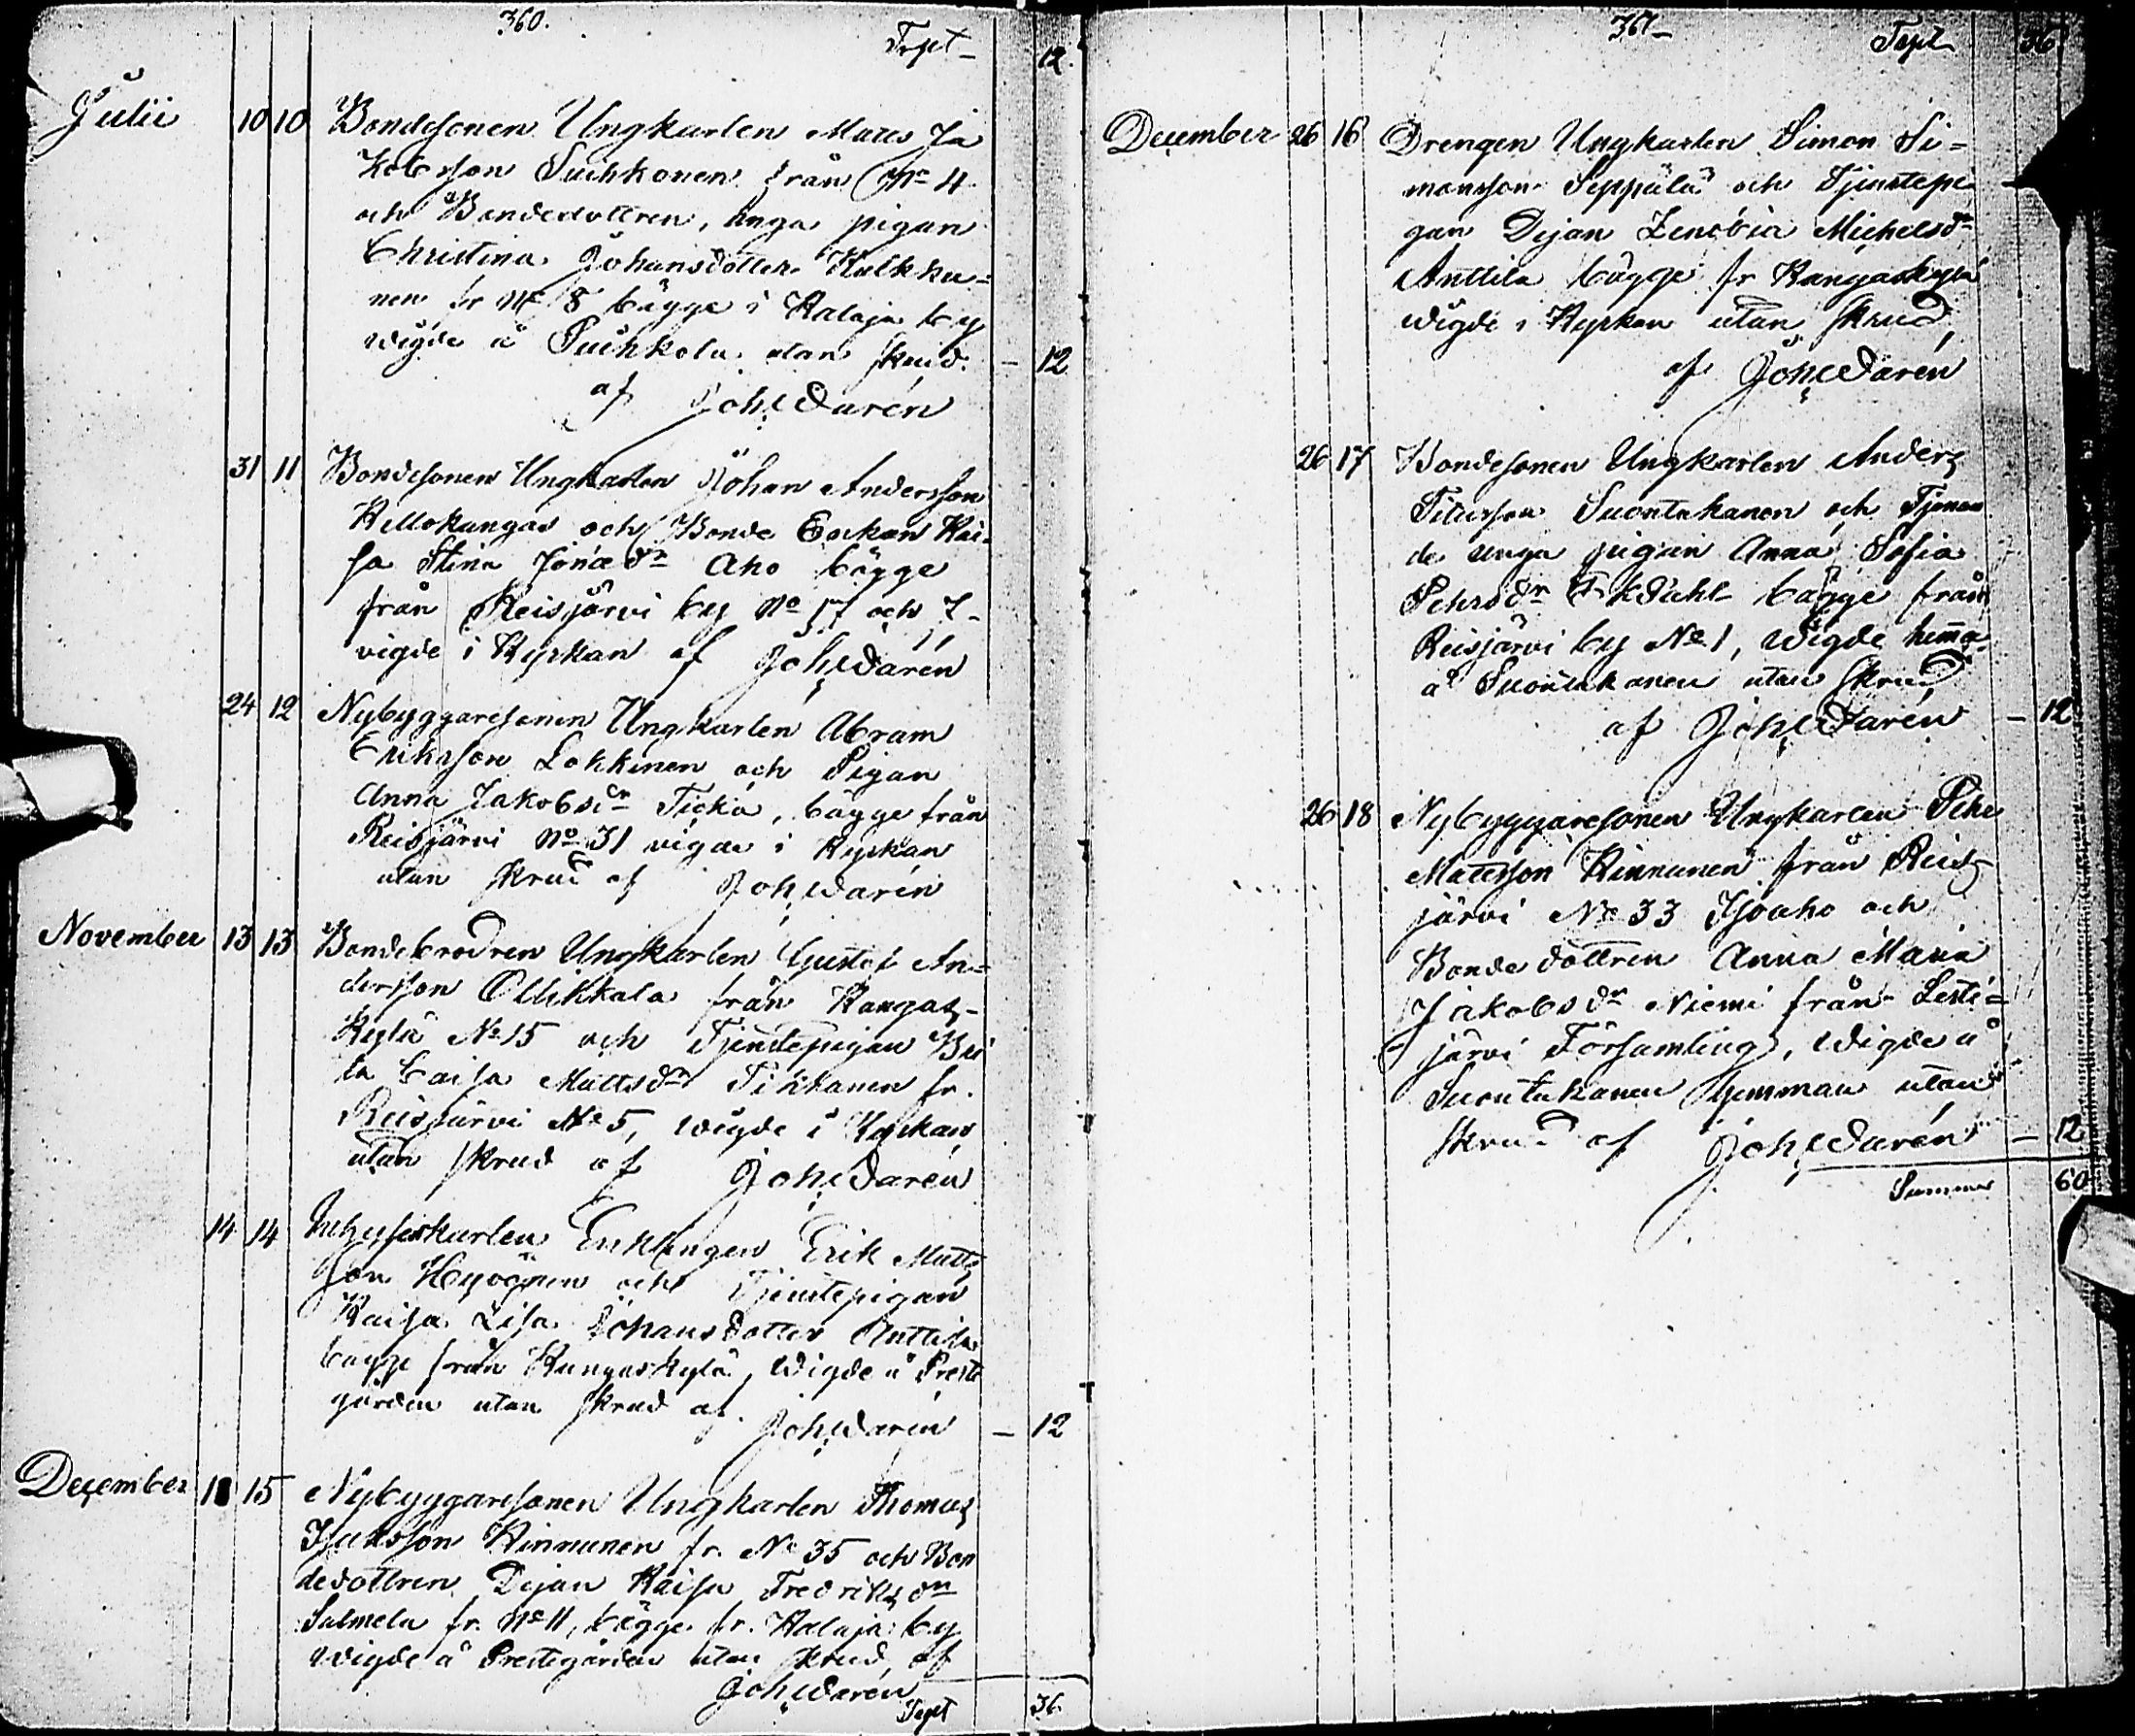 360.
Trpt - 12.
Julii 10 10 Bondesonen Ungkarlen Mats Ja
kobsson Suihkonen från No 4
och Bondedottren, unga pigan
Christina Johansdotter Kulkku-
nen fr No 8 bägge i Kalaja by
wigde å Puihkola utan skrud. - 12
af Joh. Widarén
31 11 Bondesonen Ungkarlen Johan Andersson
Kellokangas och Bonde Enkan Kai-
sa Stina Jonædr Aho bägge
från Reisjärvi by No 17 och 7-
vigde i Kyrkan af Joh. Widarén
24 12 Nybyggaresonen Ungkarlen Abram
Eriksson Lokkinen och Pigan
Anna Jakobsdr Ticka, bägge från
Reisjärvi No 31 vigde i Kyrkan
utan skrud af Joh. Widarén
November 13 13 Bondebrodren Ungkarlen Gustaf An-
dersson Ollikkala från Kangas-
kylä No 15 och Tjenstepigan Bri
ta Caisa Mattsdr Tikkanen fr.
Reisjärvi No 5, wigde i Kyrkan
utan skrud af Joh. Widarén
14 14 Inhyseskarlen Enklingen Erik Matts
son Hyvönen och Tjenstepigan
Kaisa Lisa Johansdotter Anttila
bägge från Kangaskylä, Wigde å Preste
gården utan skrud af Joh. Widarén - 12
December 18 15 Nybyggaresonen Ungkarlen Thomas
Isaksson Kinnunen fr. No 35 och Bon
dedottren Dejan Kaisa Fredriksdr
Salmela fr. No 11, bägge fr. Kalaja by
Wigde å Prestegården utan skrud, af
Joh. Widarén
Trpt 36.
361-
Trpt 36
December 26 16 Drengen Ungkarlen Simon Si-
monsson Seppälä och Tjenstepi
gan Dejan Zenobia Michelsdr
Anttila bägge fr Kangaskylä
wigde i Kyrkan utan skrud,
af Joh. Widarén
26 17 Bondesonen Ungkarlen Anders
Petersson Suontakanen och Tjenan
de unga pigan Anna Sofia
Pehrsdr Ekdahl bägge från
Reisjärvi by No 1, wigde hemma
å Suontakanen utan skrud
af Joh. Widarén - 12
26 18 Nybyggaresonen Ungkarlen Pehr
Matsson Kinnunen från Reis
järvi No 33 Isoaho och
Bondedottren Anna Maria
Jakobsdr Niemi från Lesti-
järvi Församling, Wigde å
Suontakanen hemman utan
skrud af Joh. Widarén - 12
Summa 60